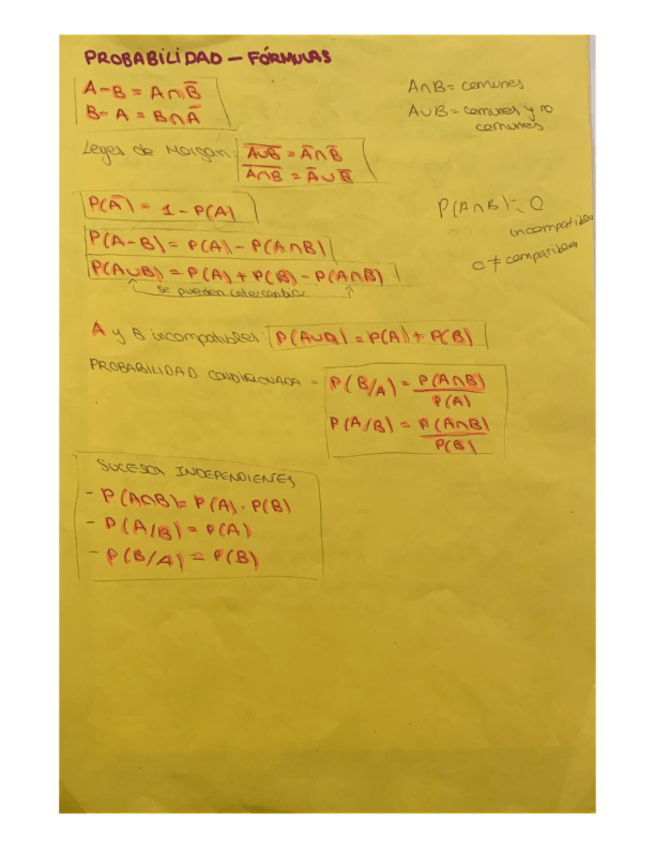 PROBABILIDAD – FÓRMULAS
A-B = A∩B̅
B-A = B∩A̅
A∩B = comunes
A∪B = comunes y no
comunes
Leyes de Morgan:
A̅∪̅B̅ = A̅∩B̅
A̅∩̅B̅ = A̅∪B̅
P(A̅) = 1 - P(A)
P(A∩B) = 0
incompatibles
0 ≠ compatibles
P(A-B) = P(A) - P(A∩B)
P(A∪B) = P(A) + P(B) - P(A∩B)
se pueden intercambiar
A y B incompatibles: P(A∪B) = P(A) + P(B)
PROBABILIDAD CONDICIONADA = P(B/A) = P(A∩B)
P(A)
P(A/B) = P(A∩B)
P(B)
SUCESOS INDEPENDIENTES
- P(A∩B) = P(A) · P(B)
- P(A/B) = P(A)
- P(B/A) = P(B)